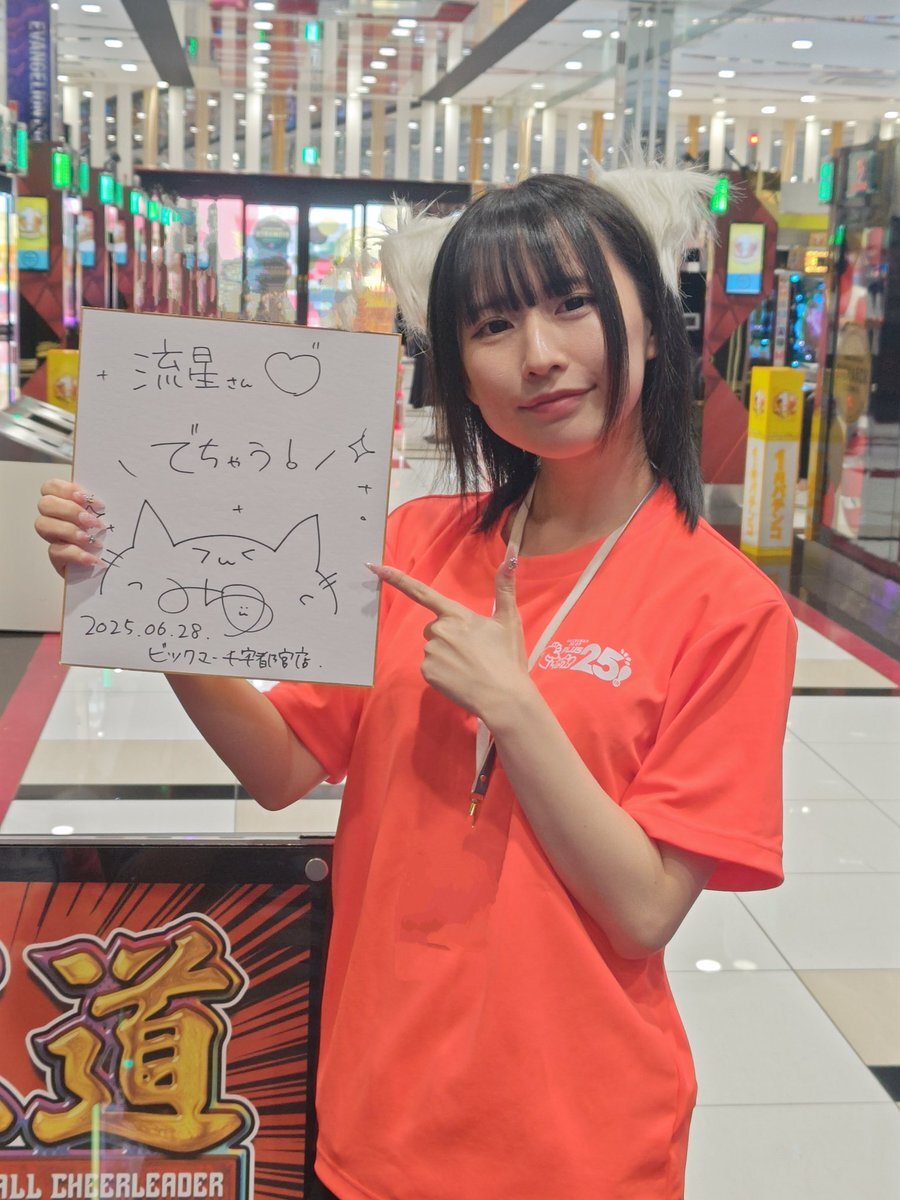 EVANGELION
流星さん♡゛
\ でちゃう! /
2025.06.28.
ビックマーチ宇都宮店.
PLUS
25
1円パチンコ
道
ALL CHEERLEADER